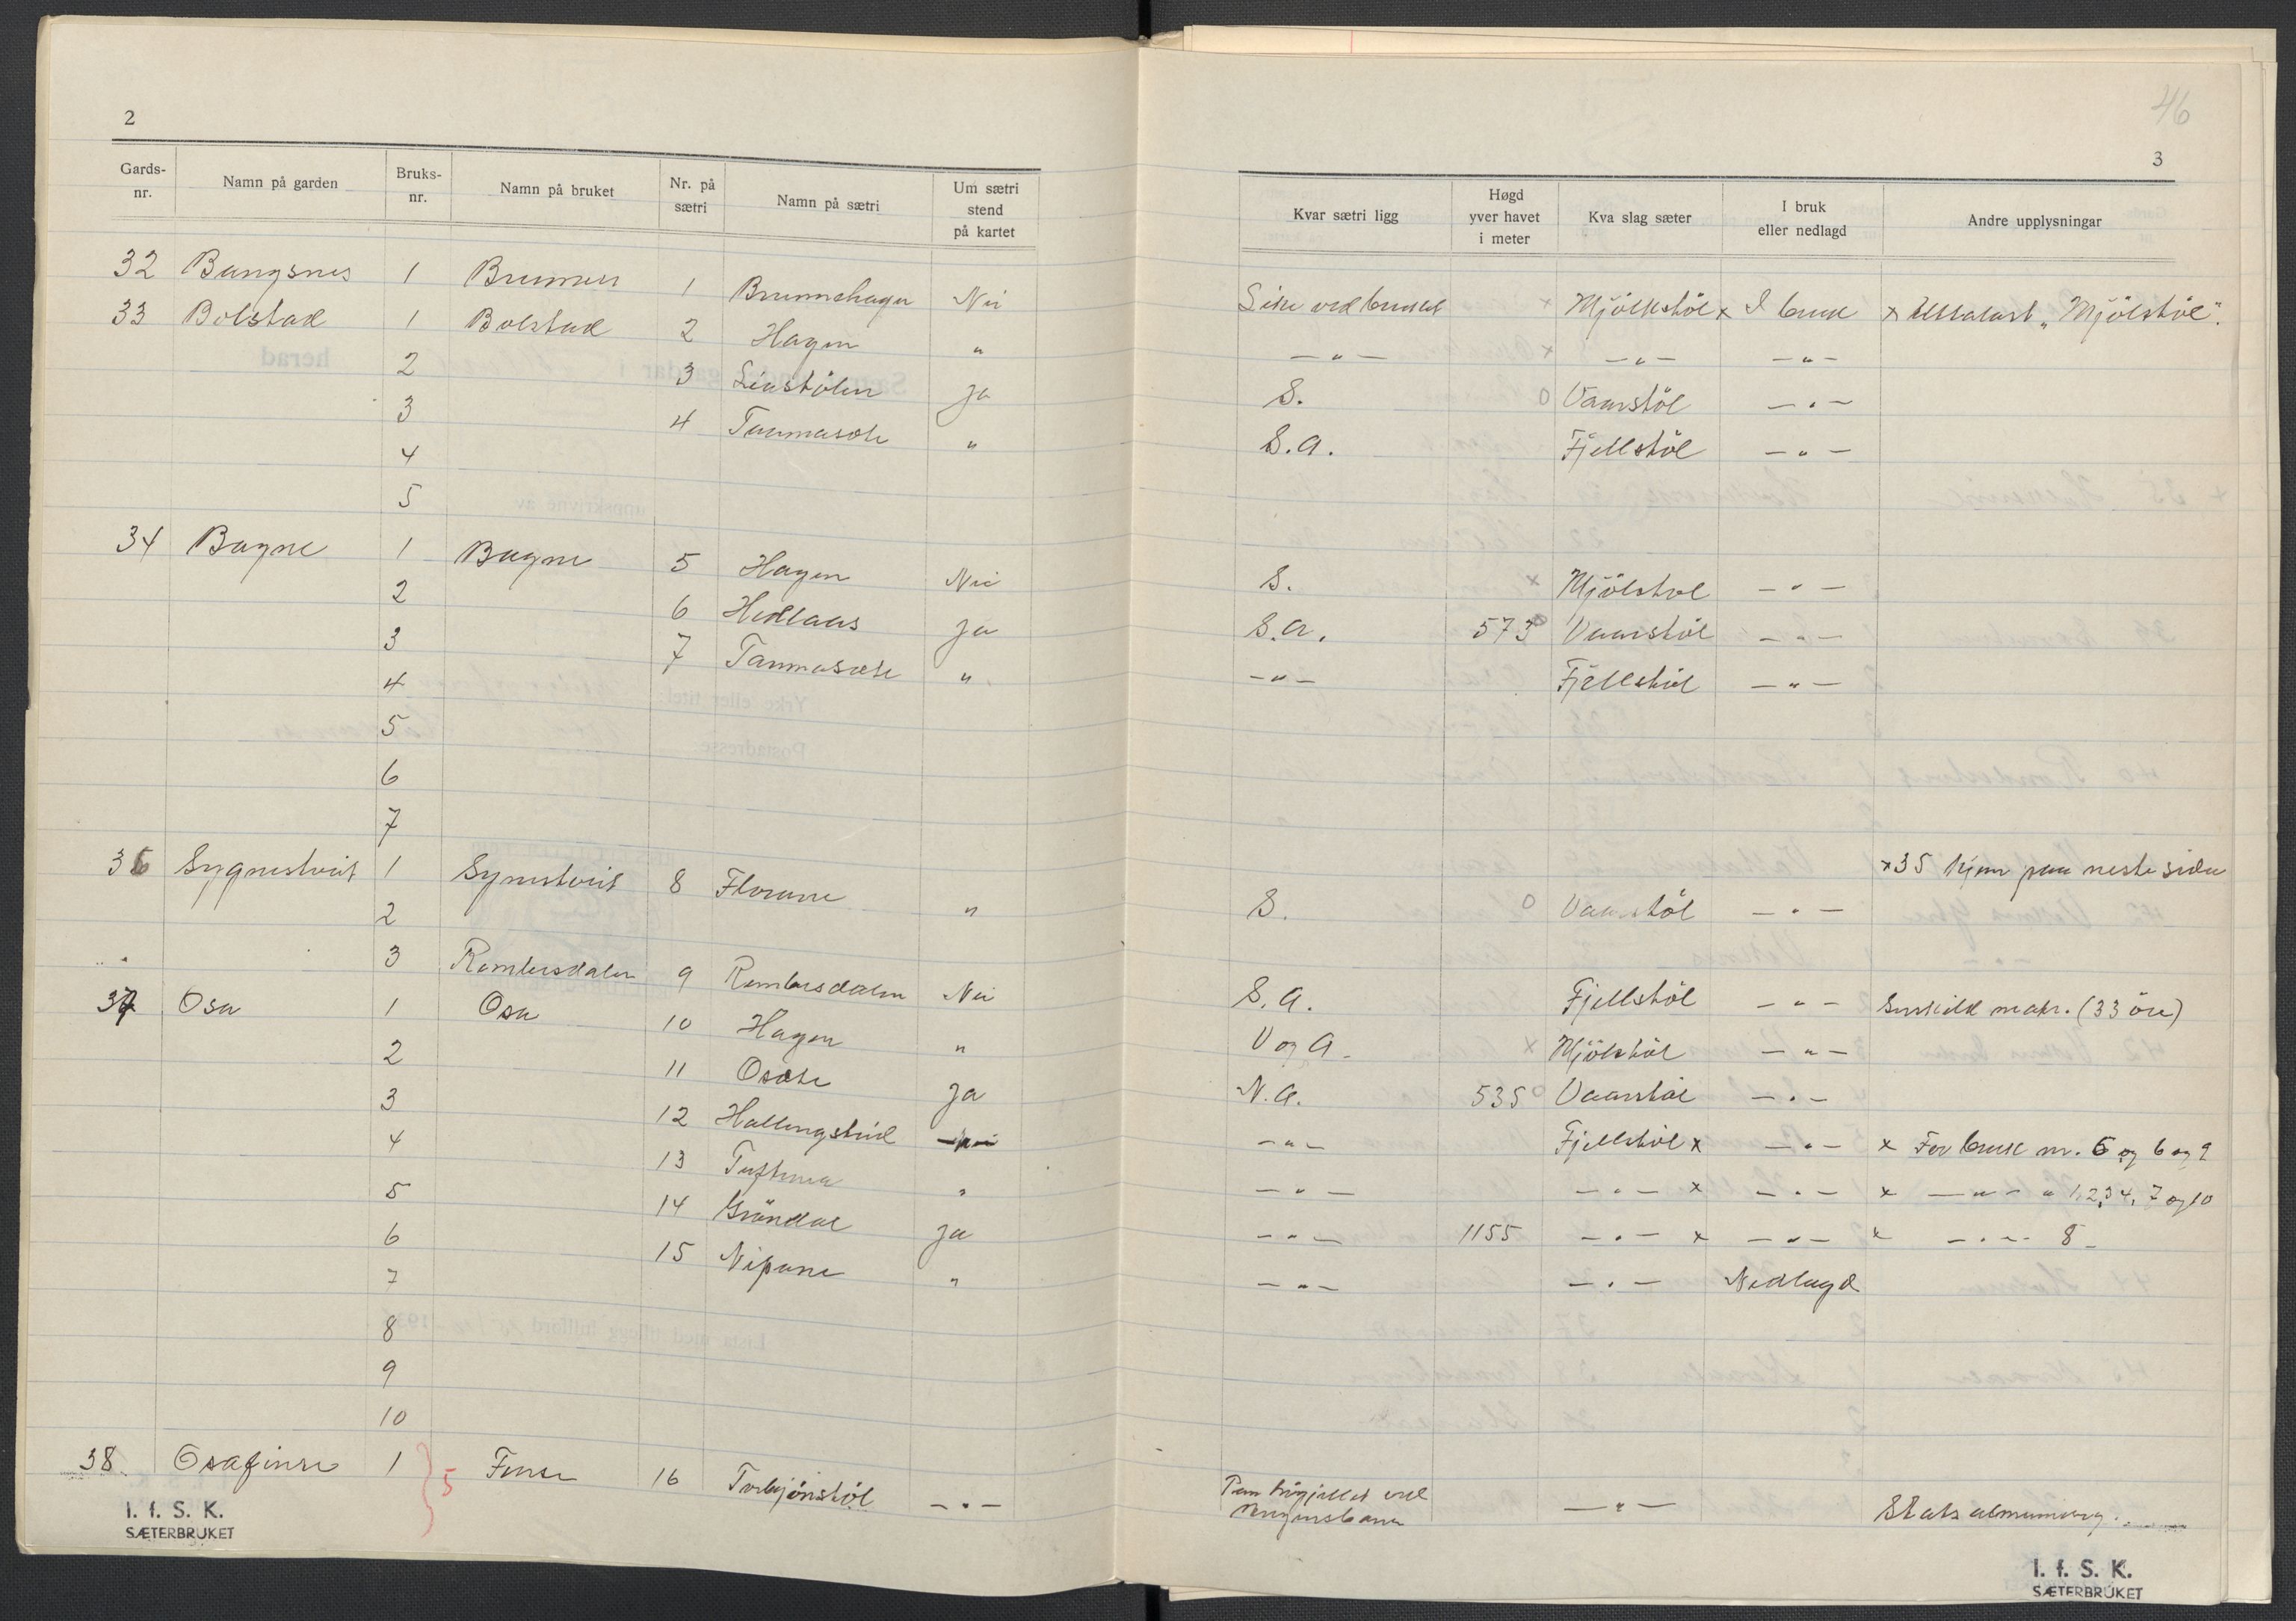 2
Gards-nr. Namn på garden Bruks-nr. Namn på bruket Nr. på sætri Namn på sætri Um sætri stend på kartet
32 Bungsnes 1 Brunnen 1 Brunnehagen Nei
33 Bolstad 1 Bolstad 2 Hagen "
2 3 Liastölen Ja
3 4 Taumasæte "
4
5
34 Bagne 1 Bagne 5 Hagen Nei
2 6 Hedlaas Ja
3 7 Taumasæte "
4
5
6
7
36 Sygnestveit 1 Synestveit 8 Florane "
2
3 Rembesdalen 9 Rembesdalen Nei
37 Osa 1 Osa 10 Hagen "
2 11 Osæte Ja
3 12 Hallingskeid
4 13 Tuftena "
5 14 Gröndal Ja
6 15 Nipane "
7
8
9
10
38 Osafinse 1 5 Finse 16 Torbjönstöl - " -
I. f. S. K.
SÆTERBRUKET
46
3
Kvar sætri ligg Høgd yver havet i meter Kva slag sæter I bruk eller nedlagd Andre upplysningar
Like ved bruket x Mjölkstöl x I bruk x Uttalast „Mjölstöl".
- " - x - " - - " -
S. O Vaarstöl - " -
S.A. Fjellstöl - " -
S. x Mjölstöl - " -
S.A. 573 O Vaarstöl - " -
- " - Fjellstöl - " -
x 35 kjem paa neste sida
S. O Vaarstöl - " -
S.A. Fjellstöl - " - Surskild matr. (33 öre)
V og A. x Mjölstöl - " -
N.A. 535 O Vaarstöl - " -
- " - Fjellstöl x - " - x For bruk nr. 5 og 6 og 9
- " - - " - x - " - x - " - " 1, 2, 3, 4, 7 og 10
- " - 1155 - " - x - " - x - " - 8
- " - - " - Nedlagd
Paa högfjellet ved
Bergensbanen - " - Statsalmenning.
I. f. S. K.
SÆTERBRUKET